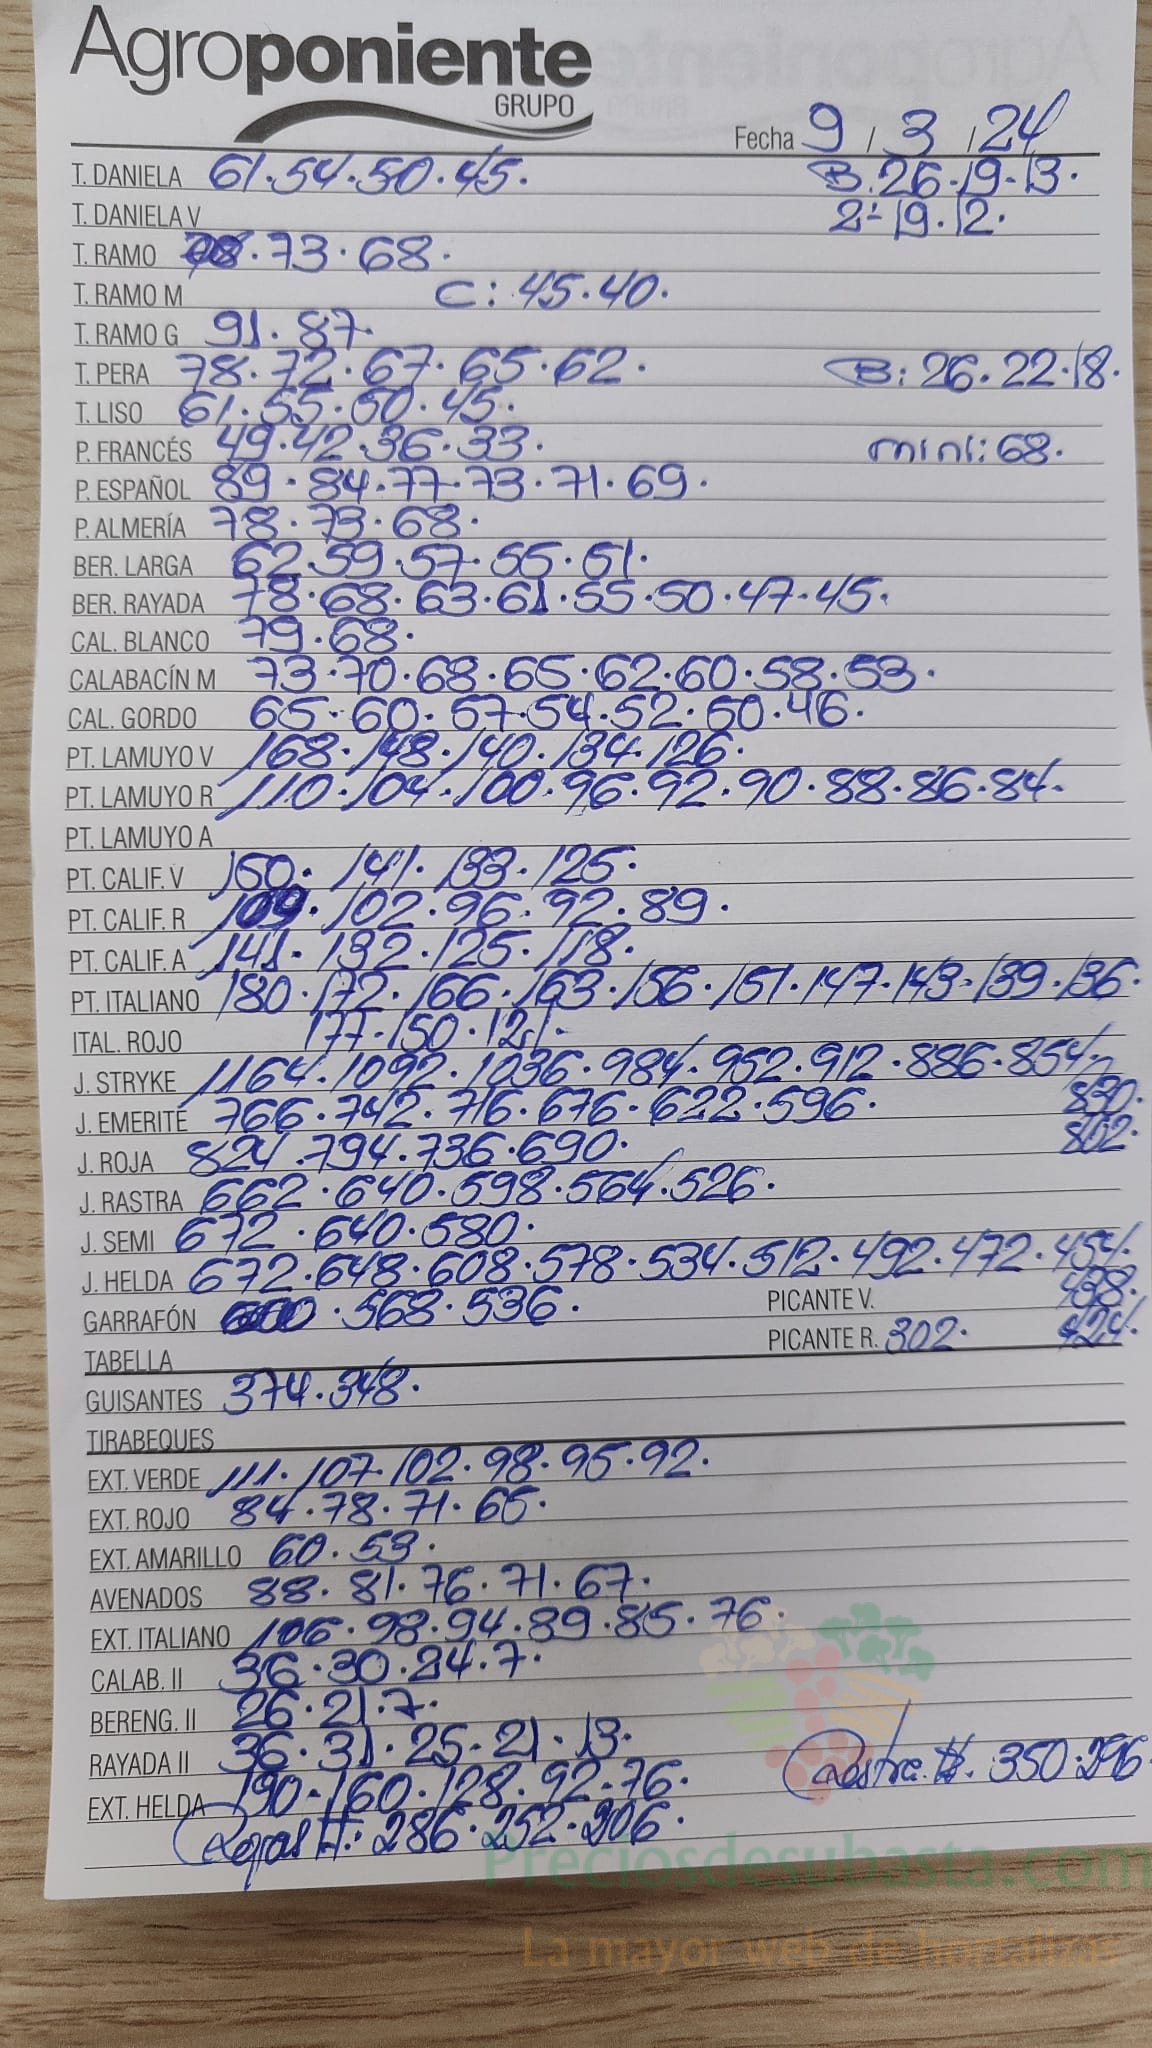 Agroponiente
GRUPO
Fecha 9 / 3 / 24
T. DANIELA 61.54.50.45. B.26.19.13.
T. DANIELA V 2ª 19.12.
T. RAMO 78.73.68.
T. RAMO M C: 45.40.
T. RAMO G 91.87.
T. PERA 78.72.67.65.62. B: 26.22.18.
T. LISO 61.55.50.45.
P. FRANCÉS 49.42.36.33. mini: 68.
P. ESPAÑOL 89.84.77.73.71.69.
P. ALMERÍA 78.73.68.
BER. LARGA 62.59.57.55.51.
BER. RAYADA 78.68.63.61.55.50.47.45.
CAL. BLANCO 79.68.
CALABACÍN M 73.70.68.65.62.60.58.53.
CAL. GORDO 65.60.57.54.52.50.46.
PT. LAMUYO V 168.148.140.134.126.
PT. LAMUYO R 110.104.100.96.92.90.88.86.84.
PT. LAMUYO A
PT. CALIF. V 150.141.133.125.
PT. CALIF. R 109.102.96.92.89.
PT. CALIF. A 141.132.125.118.
PT. ITALIANO 180.172.166.163.156.151.147.143.139.136.
ITAL. ROJO 177.150.121.
J. STRYKE 1164.1092.1036.984.952.912.886.854.
J. EMERITÉ 766.742.716.676.622.596. 830.
J. ROJA 824.794.736.690. 802.
J. RASTRA 662.640.598.564.526.
J. SEMI 672.640.580.
J. HELDA 672.648.608.578.534.512.492.472.454.
GARRAFÓN 600.568.536. PICANTE V. 438.
TABELLA PICANTE R. 302. 424.
GUISANTES 374.348.
TIRABEQUES
EXT. VERDE 111.107.102.98.95.92.
EXT. ROJO 84.78.71.65.
EXT. AMARILLO 60.53.
AVENADOS 88.81.76.71.67.
EXT. ITALIANO 106.98.94.89.85.76.
CALAB. II 36.30.24.7.
BERENG. II 26.21.7.
RAYADA II 36.31.25.21.13.
EXT. HELDA 190.160.128.92.76. Rastra II. 350.296
Rojas II: 286.252.206.
Preciosdesubasta.com
La mayor web de hortalizas